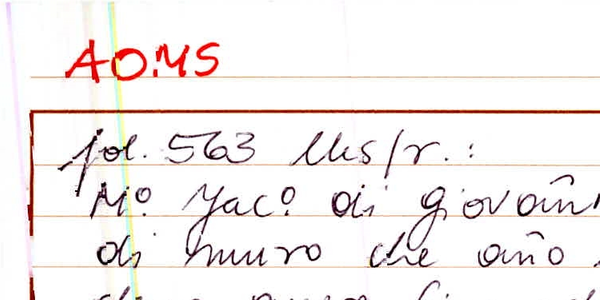 AO:45
fol. 563 lks/r.:
Mº. Jacº. di giovān
di muro che año